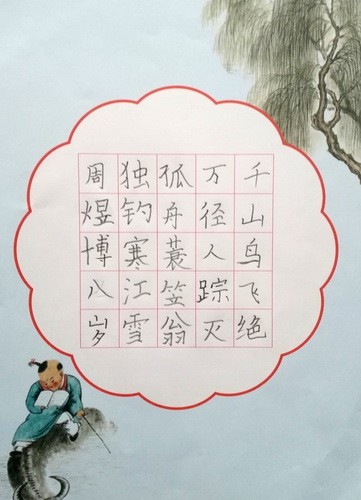 千山鸟飞绝
万径人踪灭
孤舟蓑笠翁
独钓寒江雪
周煜博八岁